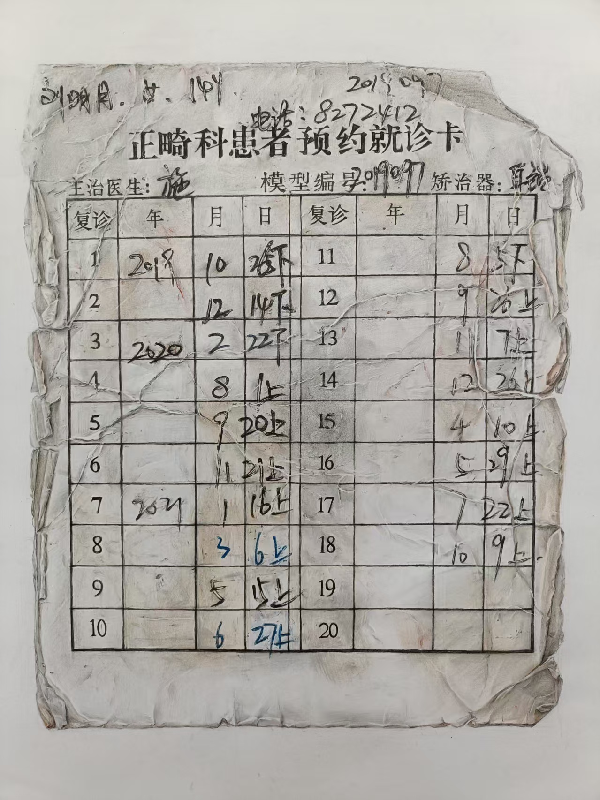 刘明月. 女. 14Y 2019.09.7
电话: 8272412
正畸科患者预约就诊卡
主治医生: 施 模型编号: 2019097 矫治器:
复诊 年 月 日 复诊 年 月 日
1 2019 10 26下 11 8 5下
2 12 14下 12 9 26上
3 2020 2 22下 13 7上
4 8 1上 14 12 26上
5 9 20上 15 4 10上
6 11 21上 16 5 29上
7 2021 1 16上 17 7 22上
8 3 6上 18 10 9上.
9 5 15上 19
10 6 27上 20